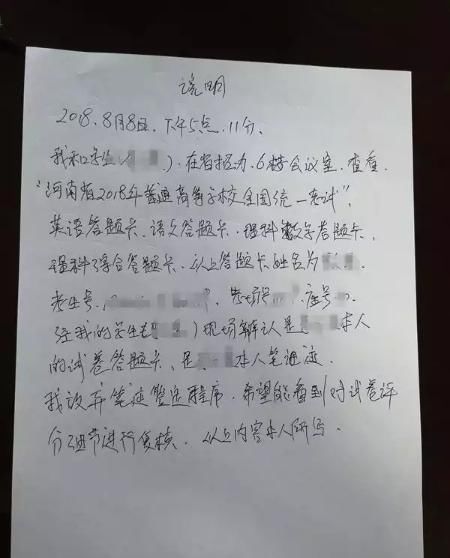 说明
2018.8月8日.下午5点.11分.
我和学生( ).在省招办.6楼会议室.查看.
"河南省2018年普通高等学校全国统一考试",
英语答题卡、语文答题卡、理科数学答题卡、
理科综合答题卡、以上答题卡姓名为
考生号, 考场号 .座号
经我的学生 ( )现场辨认是 本人
的试卷答题卡、是 本人笔迹.
我放弃笔迹鉴定程序.希望能看到对试卷评
分细节进行复核. 以上内容本人所写.